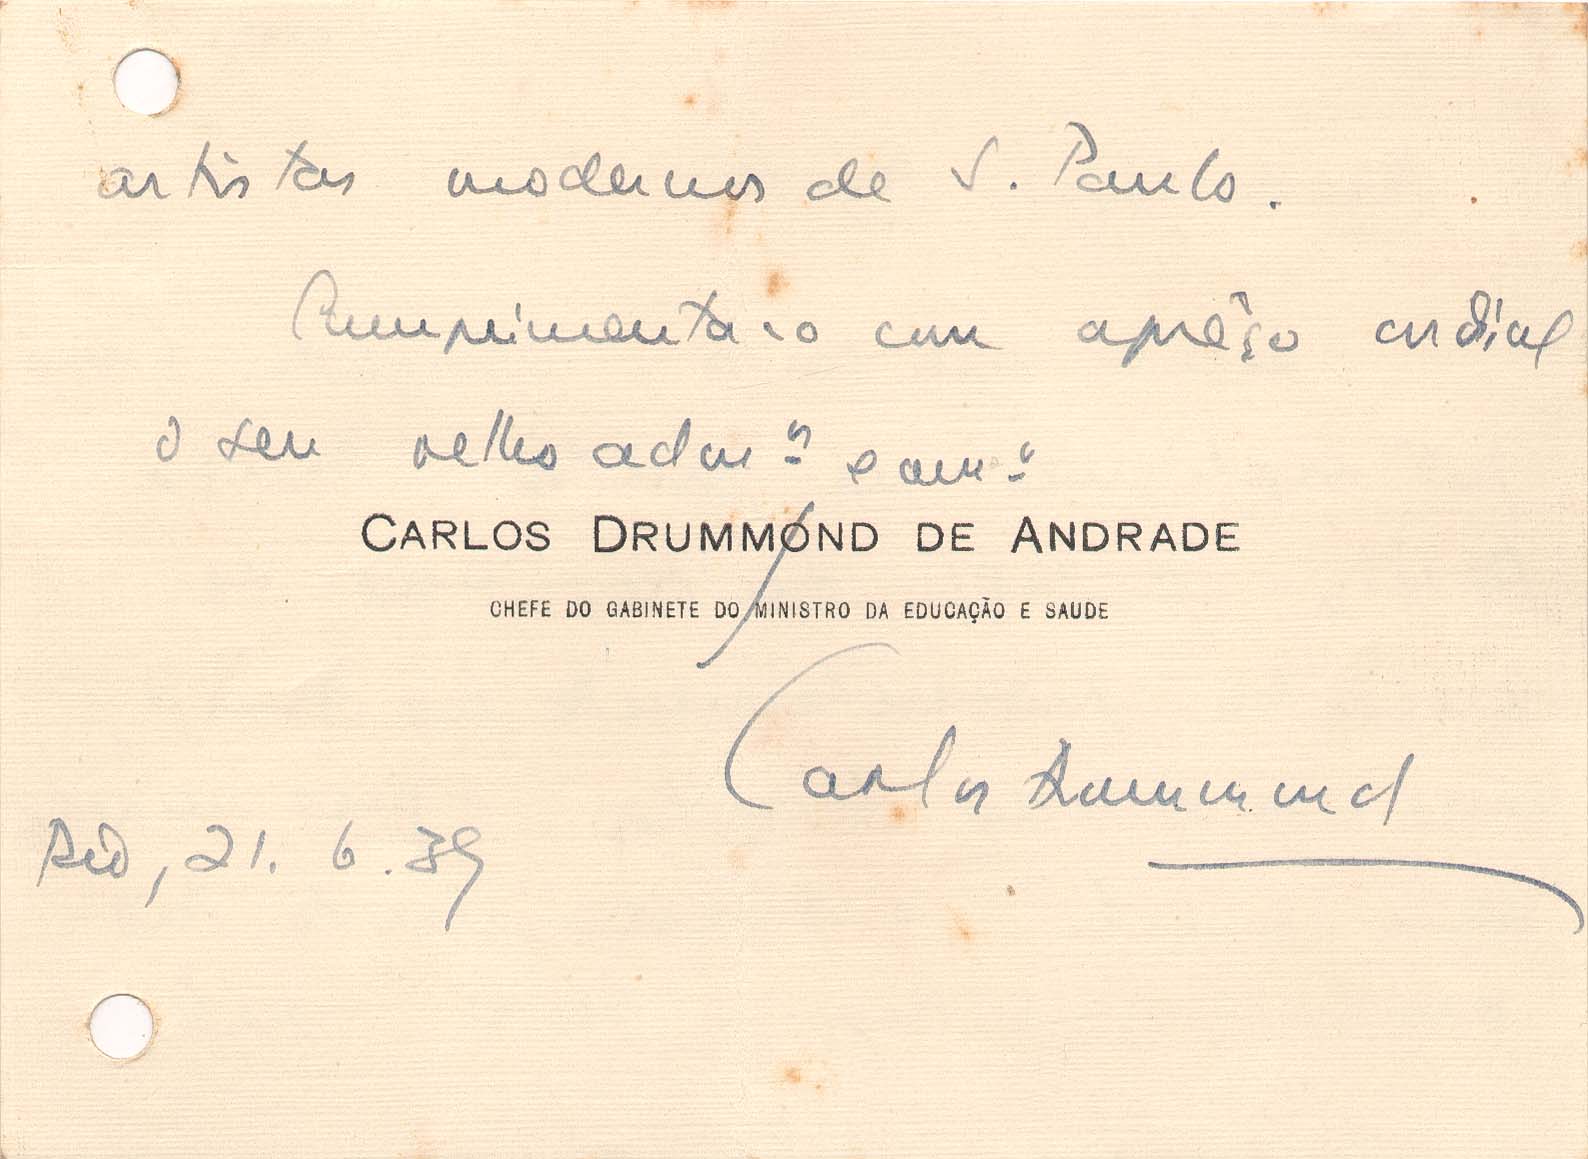 artistas modernos de S. Paulo.
Cumprimenta-o com aprêço cordial
o seu velho admº e amº
CARLOS DRUMMOND DE ANDRADE
CHEFE DO GABINETE DO MINISTRO DA EDUCAÇÃO E SAUDE
Carlos Drummond
Rio, 21. 6. 39